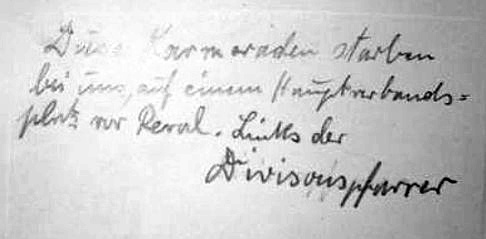 Diese Karmeraden starben
bei uns, auf einem Hauptverbands=
platz vor Reval. Links der
Divisonspfarrer